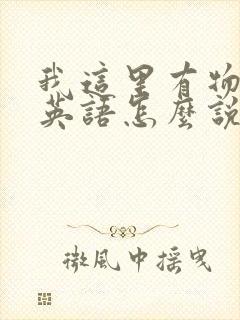 我這里有物
英語怎麼說
微風中搖曳